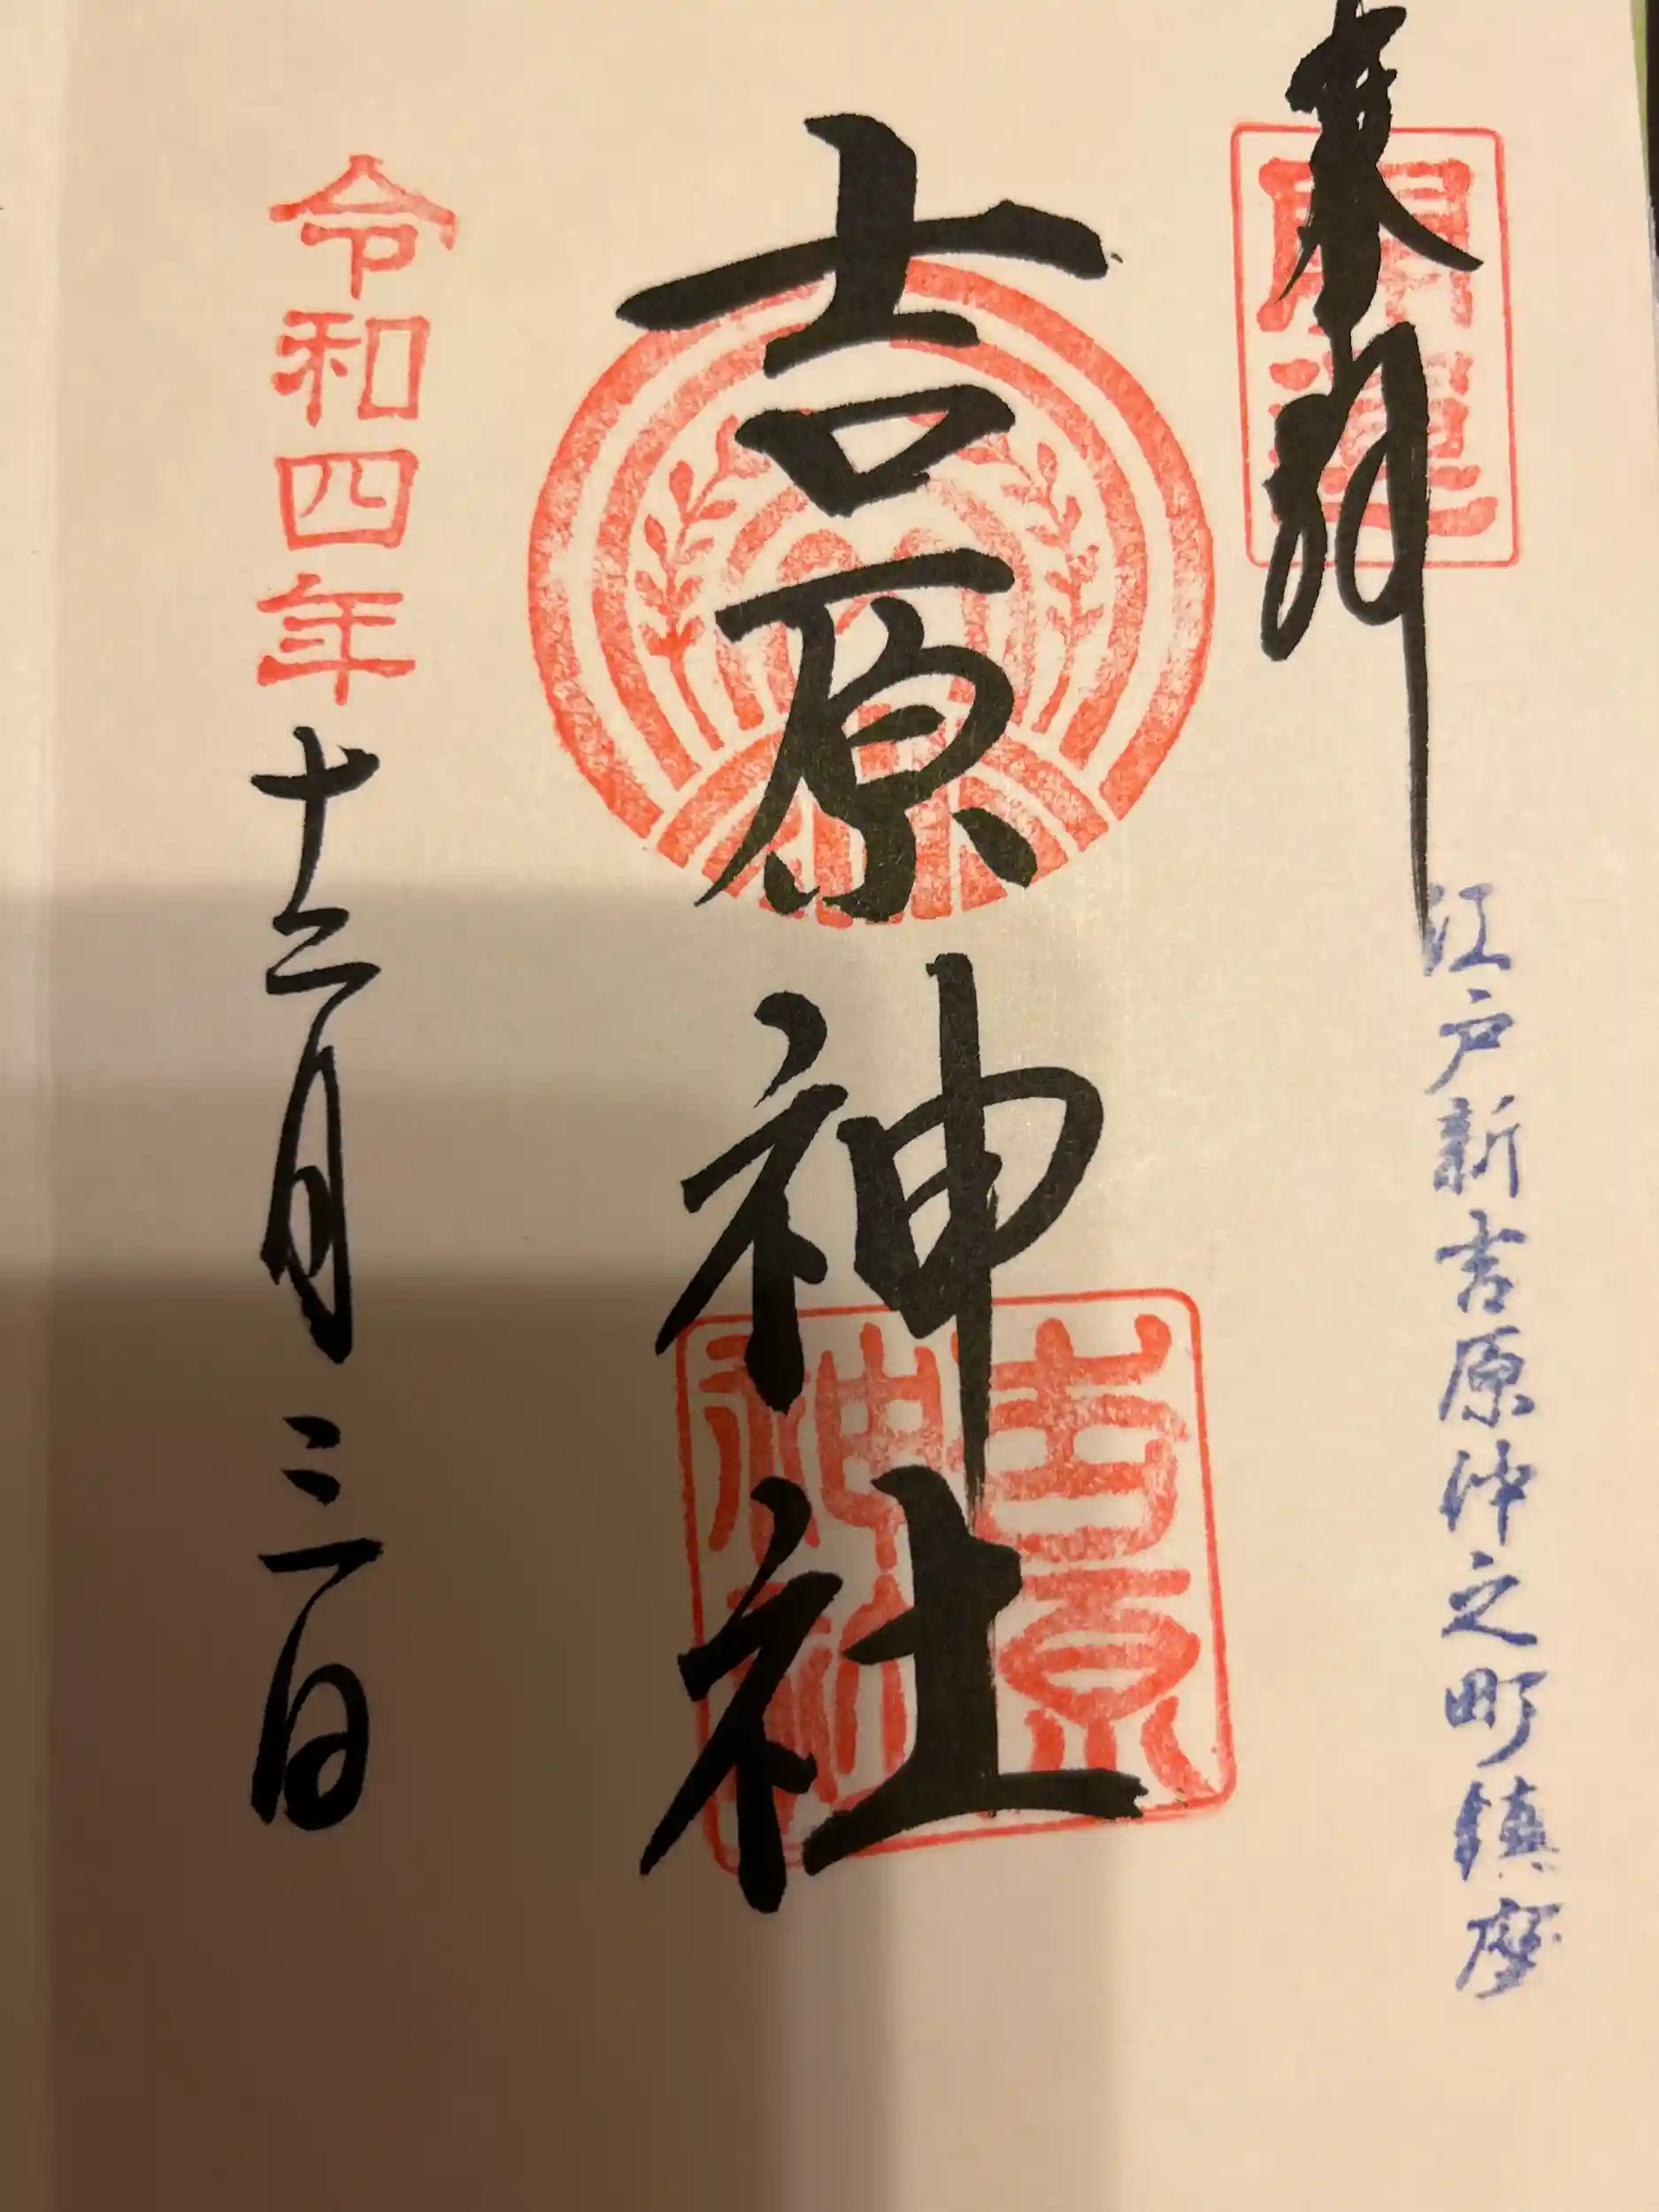 奉拝
開運
江戸新吉原仲之町鎮座
吉原神社
吉原神社
令和四年十二月三日